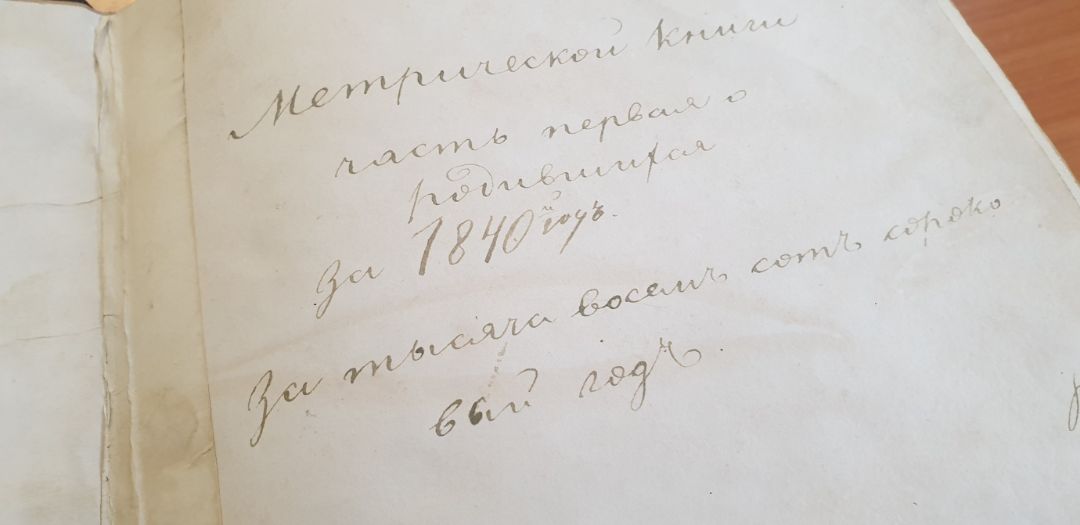 Метрической книги
часть первая о
родившихся
За 1840й годъ.
За тысяча восемъ сотъ сороко
вый годъ.